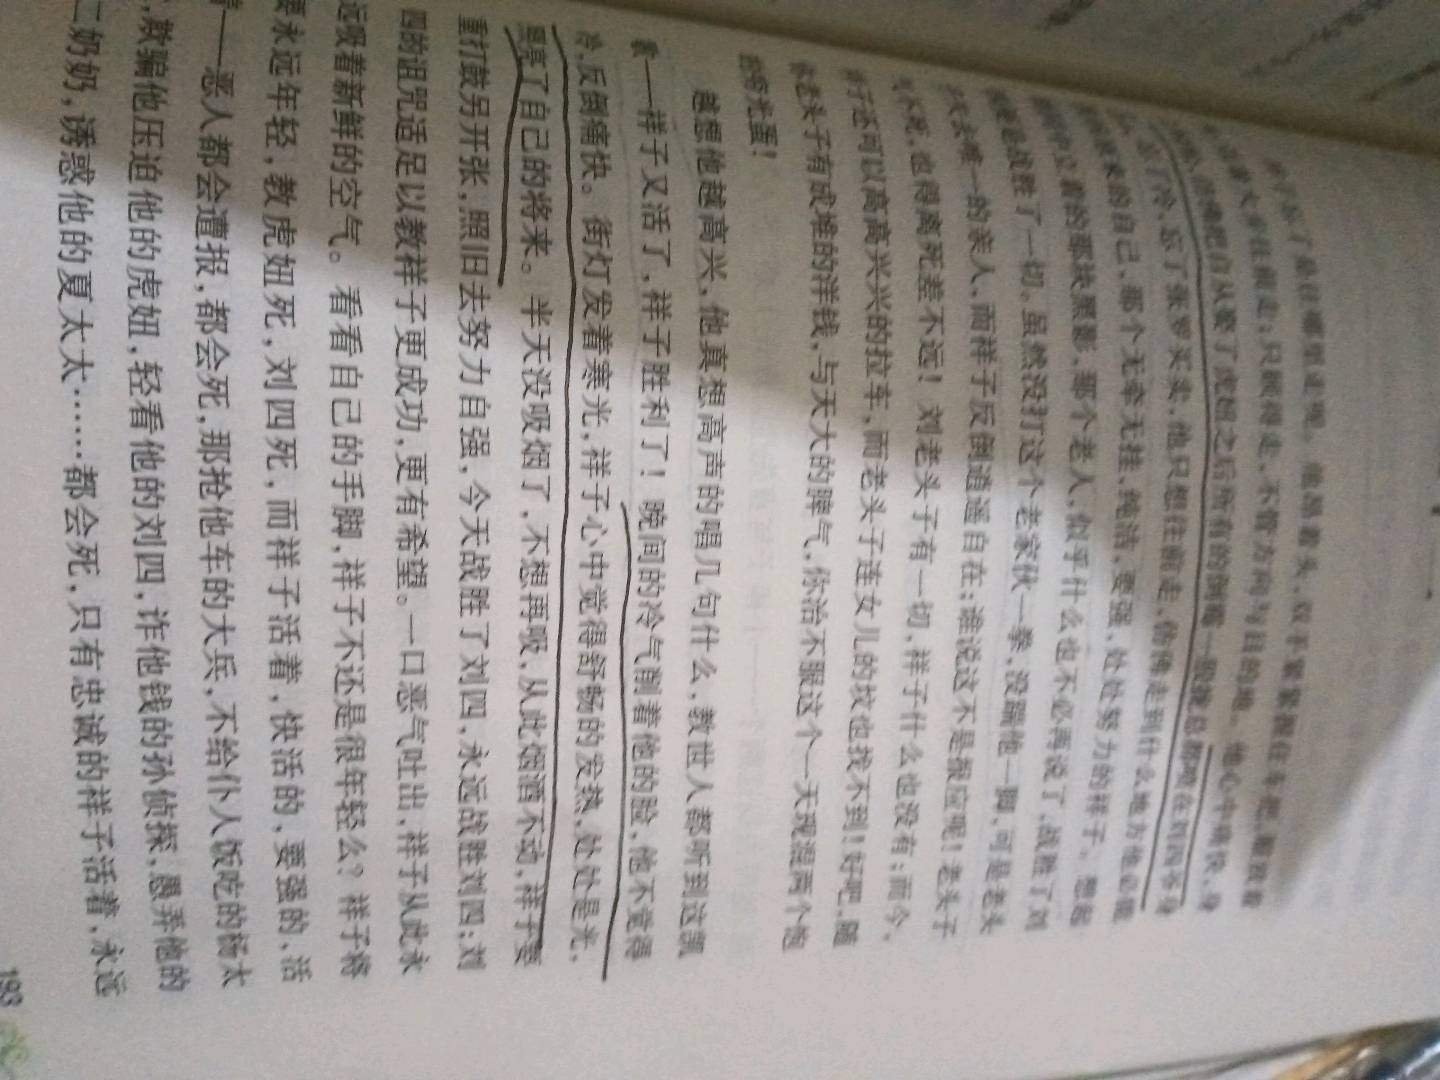 子忘了是往哪里走呢。他昂着头，双手紧紧握住车把，眼放着
大步往前走；只顾得走，不管方向与目的地。他心中痛快，身
上轻松，仿佛把自从娶了虎妞之后所有的倒霉一股拢总都喷在刘四爷身
上。忘了冷，忘了张罗买卖，他只想往前走，仿佛走到什么地方他必能
找回原来的自己，那个无牵无挂，纯洁，要强，处处努力的祥子。想起
胡同中立着的那块黑影，那个老人，似乎什么也不必再说了，战胜了刘
四便是战胜了一切。虽然没打这个老家伙一拳，没踹他一脚，可是老头
子失去唯一的亲人，而祥子反倒逍遥自在；谁说这不是报应呢！老头子
气不死，也得离死差不远！刘老头子有一切，祥子什么也没有；而今，
祥子还可以高高兴兴的拉车，而老头子连女儿的坟也找不到！好吧，随
你老头子有成堆的洋钱，与天大的脾气，你治不服这个一天现混两个饱
的穷光蛋！
越想他越高兴，他真想高声的唱几句什么，教世人都听到这凯
歌——祥子又活了，祥子胜利了！晚间的冷气削着他的脸，他不觉得
冷，反倒痛快。街灯发着寒光，祥子心中觉得舒畅的发热，处处是光，
照亮了自己的将来。半天没吸烟了，不想再吸，从此烟酒不动，祥子要
重打鼓另开张，照旧去努力自强，今天战胜了刘四，永远战胜刘四；刘
四的诅咒适足以教祥子更成功，更有希望。一口恶气吐出，祥子从此永
远吸着新鲜的空气。看看自己的手脚，祥子不还是很年轻么？祥子将
要永远年轻，教虎妞死，刘四死，而祥子活着，快活的，要强的，活
着——恶人都会遭报，都会死，那抢他车的大兵，不给仆人饭吃的杨太
，欺骗他压迫他的虎妞，轻看他的刘四，诈他钱的孙侦探，愚弄他的
二奶奶，诱惑他的夏太太……都会死，只有忠诚的祥子活着，永远
193